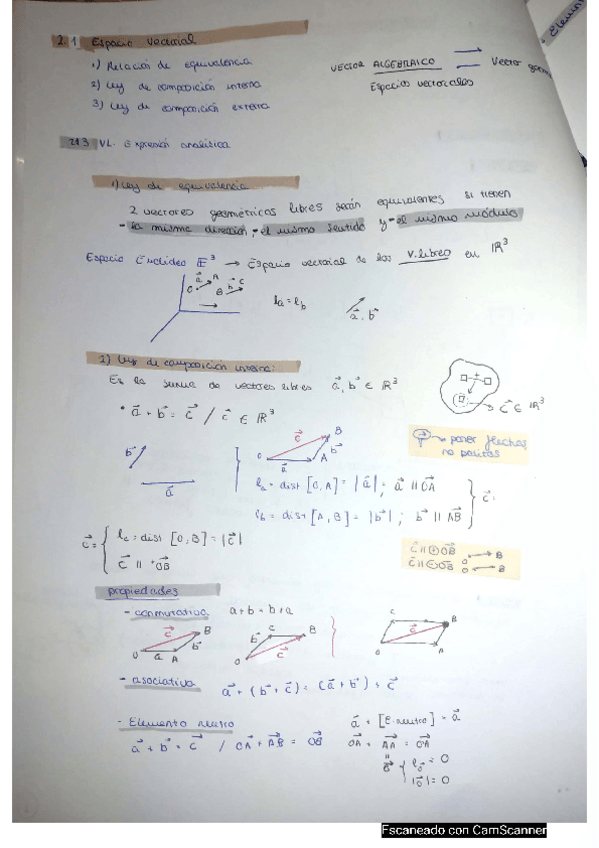 2.1 Espacio vectorial
1) Relación de equivalencia
2) Ley de composición interna
3) Ley de composición externa
VECTOR ALGEBRAICO
Vector
Espacios vectoriales
2.1.3 VL. Expresión analítica
1) Ley de equivalencia
2 vectores geométricos libres serán equivalentes si tienen
- la misma dirección, - el mismo sentido y - el mismo módulo
Espacio Euclideo E³ → Espacio vectorial de los V. libres en ℝ³
lₐ = l_b
a⃗, b⃗
2) Ley de composición interna:
Es la suma de vectores libres a⃗, b⃗ ∈ ℝ³
• a⃗ + b⃗ = c⃗ / c⃗ ∈ ℝ³
→ c⃗ ∈ ℝ³
→ poner flechas
no palitos
lₐ = dist [O, A] = |a⃗| ; a⃗ ∥ OA
l_b = dist [A, B] = |b⃗| ; b⃗ ∥ AB
c⃗ = { l_c = dist [O, B] = |c⃗|
c⃗ ∥ ⁺OB
c⃗ ∥ ⊕ OB
c⃗ ∥ ⊖ OB
propiedades
- conmutativa a + b = b + a
- asociativa a⃗ + (b⃗ + c⃗) = (a⃗ + b⃗) + c⃗
- Elemento neutro a⃗ + [E. neutro] = a⃗
a⃗ + b⃗ = c⃗ / OA + AB = OB OA + AA = OA
= 0
= 0
Escaneado con CamScanner